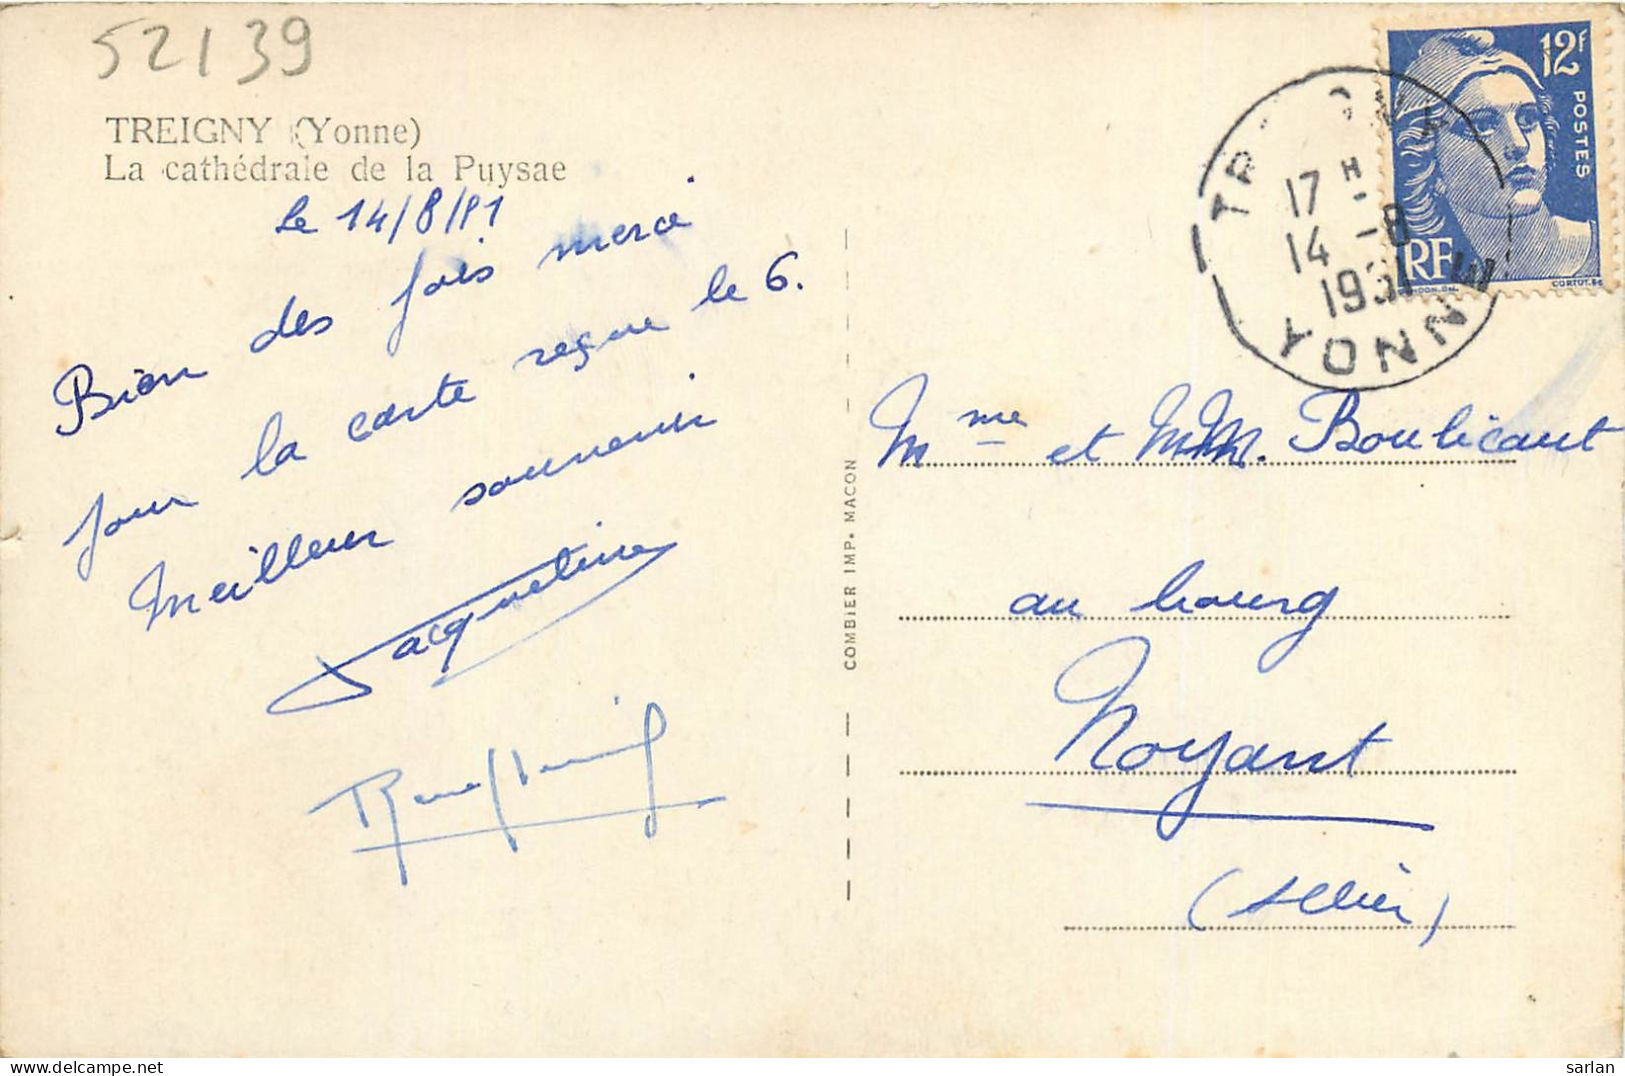 52139
TREIGNY (Yonne)
La cathédrale de la Puysae
Le 14/8/51
Bien des fois merci
pour la carte reçue le 6.
Meilleur souvenir
Jacqueline
COMBIER IMP. MACON
12F
POSTES
RF
CORTOT.
17 H
14 -8
1951
YONNE
Mme et MM. Boulicaut
au bourg
Noyant
(Allier)
sarlan